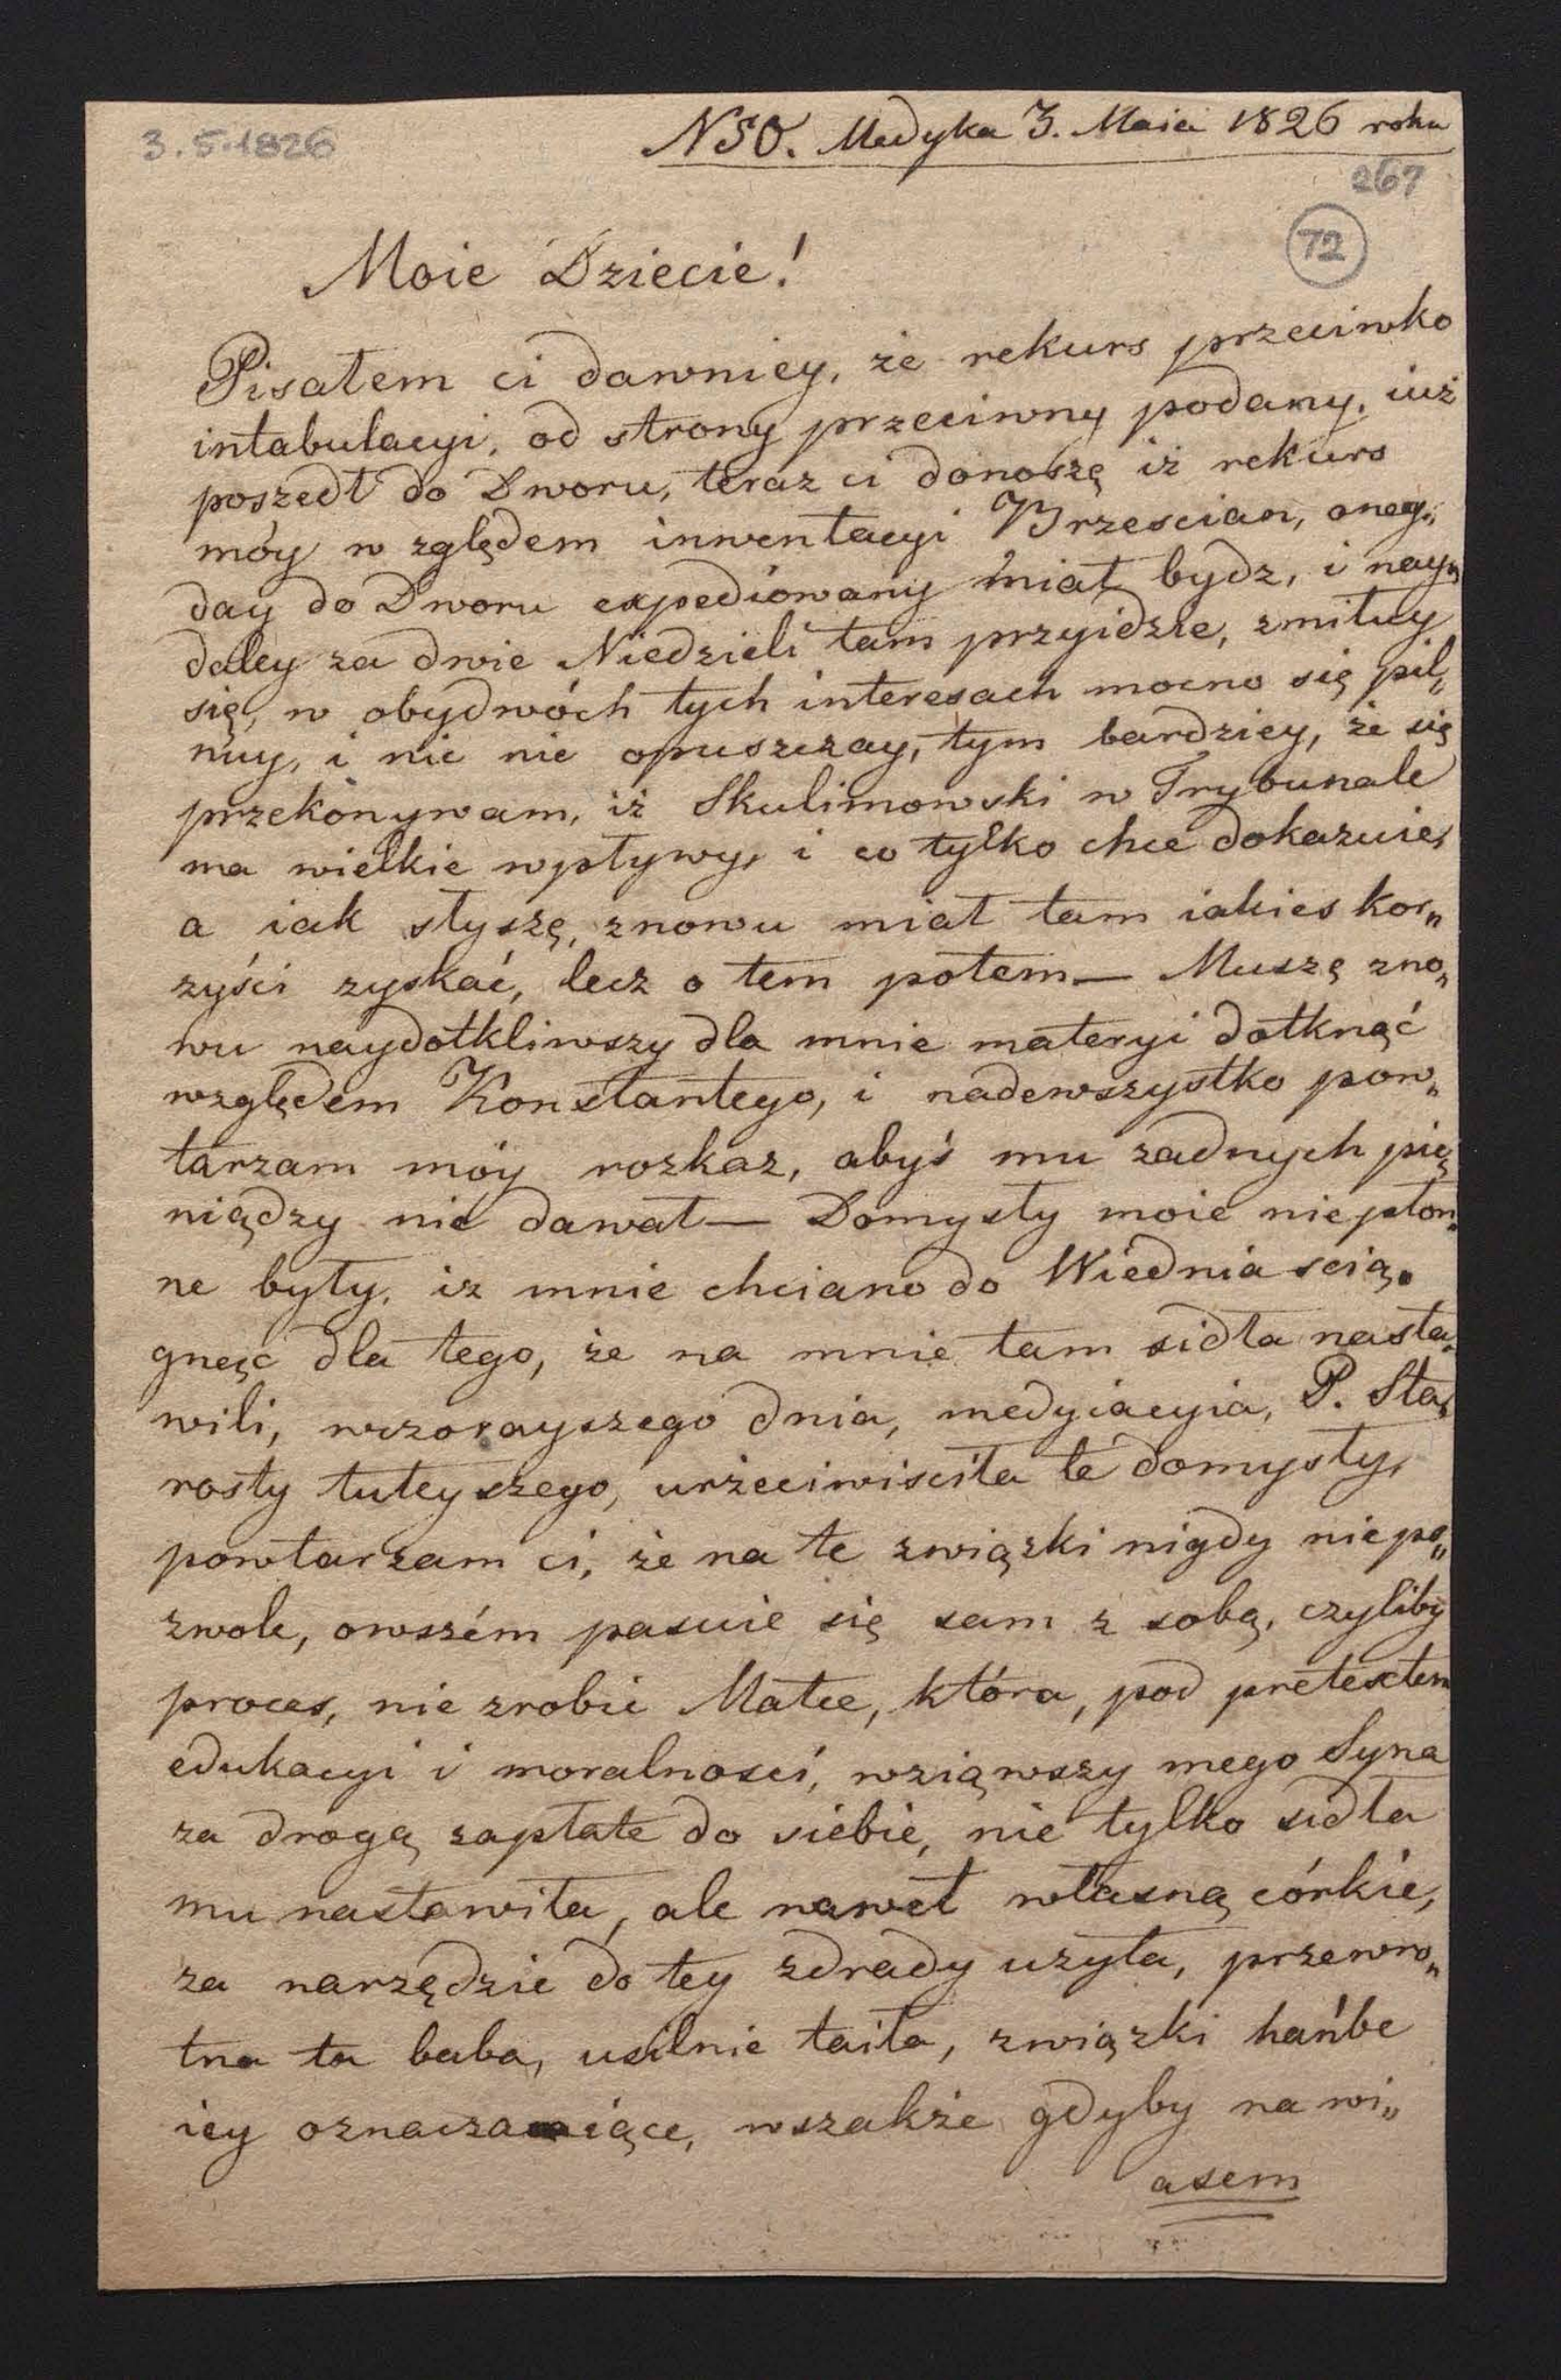 3.5.1826
N50. Medyka 3. Maia 1826 roku
267
72
Moie Dziecie!
Pisałem ci dawniey, że rekurs przeciwko
intabulacyi, od strony przeciwny podany, iuż
poszedł do Dworu, teraz ci donoszę iż rekurs
móy w zględem inwentacyi Brzescian, oneg„
day do Dworu expediowany miał bydz, i nay„
daley za dwie Niedzieli tam przyidzie, zmiłuy
się, w obydwóch tych interesach mocno się pil„
nuy, i nic nie opuszczay, tym bardziey, że się
przekonywam, iż Skulimowski w Trybunale
ma wielkie wpływy, i co tylko chce dokazuie,
a iak słyszę, znowu miał tam iakies kor„
zyści zyskać, lecz o tem potem — Muszę zno„
wu naydotkliwszy dla mnie materyi dotknąć
względem Konstantego, i nadewszystko pow„
tarzam móy rozkaz, abyś mu zadnych pie„
niądzy nie dawał — Domysły moie niepłon„
ne były, iz mnie chciano do Wiednia scią„
gnąć dla tego, że na mnie tam sidła nasta„
wili, wczorayszego dnia, medyiacyia, P. Sta„
rosty tuteyszego, urzeciwisciła te domysły,
powtarzam ci, że na te związki nigdy niepo„
zwole, owszém pasuie się sam z sobą, czyliby
proces, nie zrobic Matce, która, pod pretextem
edukacyi i moralnosci, wziąwszy mego Syna
za drogą zapłate do siebie, nie tylko sidła
mu nastawiła, ale nawet własną córkie,
za narzędzie do tey zdrady uzyła, przewro„
tna ta baba, usilnie taiła, związki hańbe
iey oznaczaiące, wszakże gdyby na wi„
asem